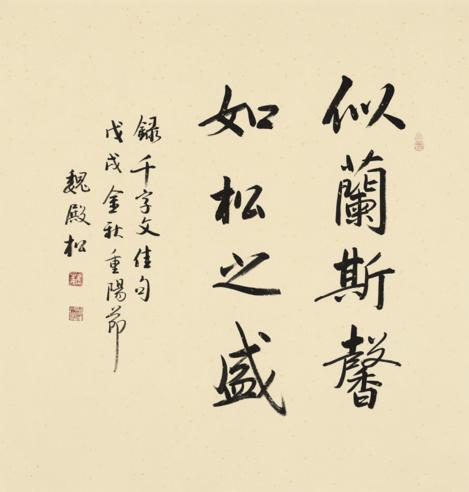 似蘭斯馨
如松之盛
録千字文佳句
戊戌金秋重陽節
魏殿松